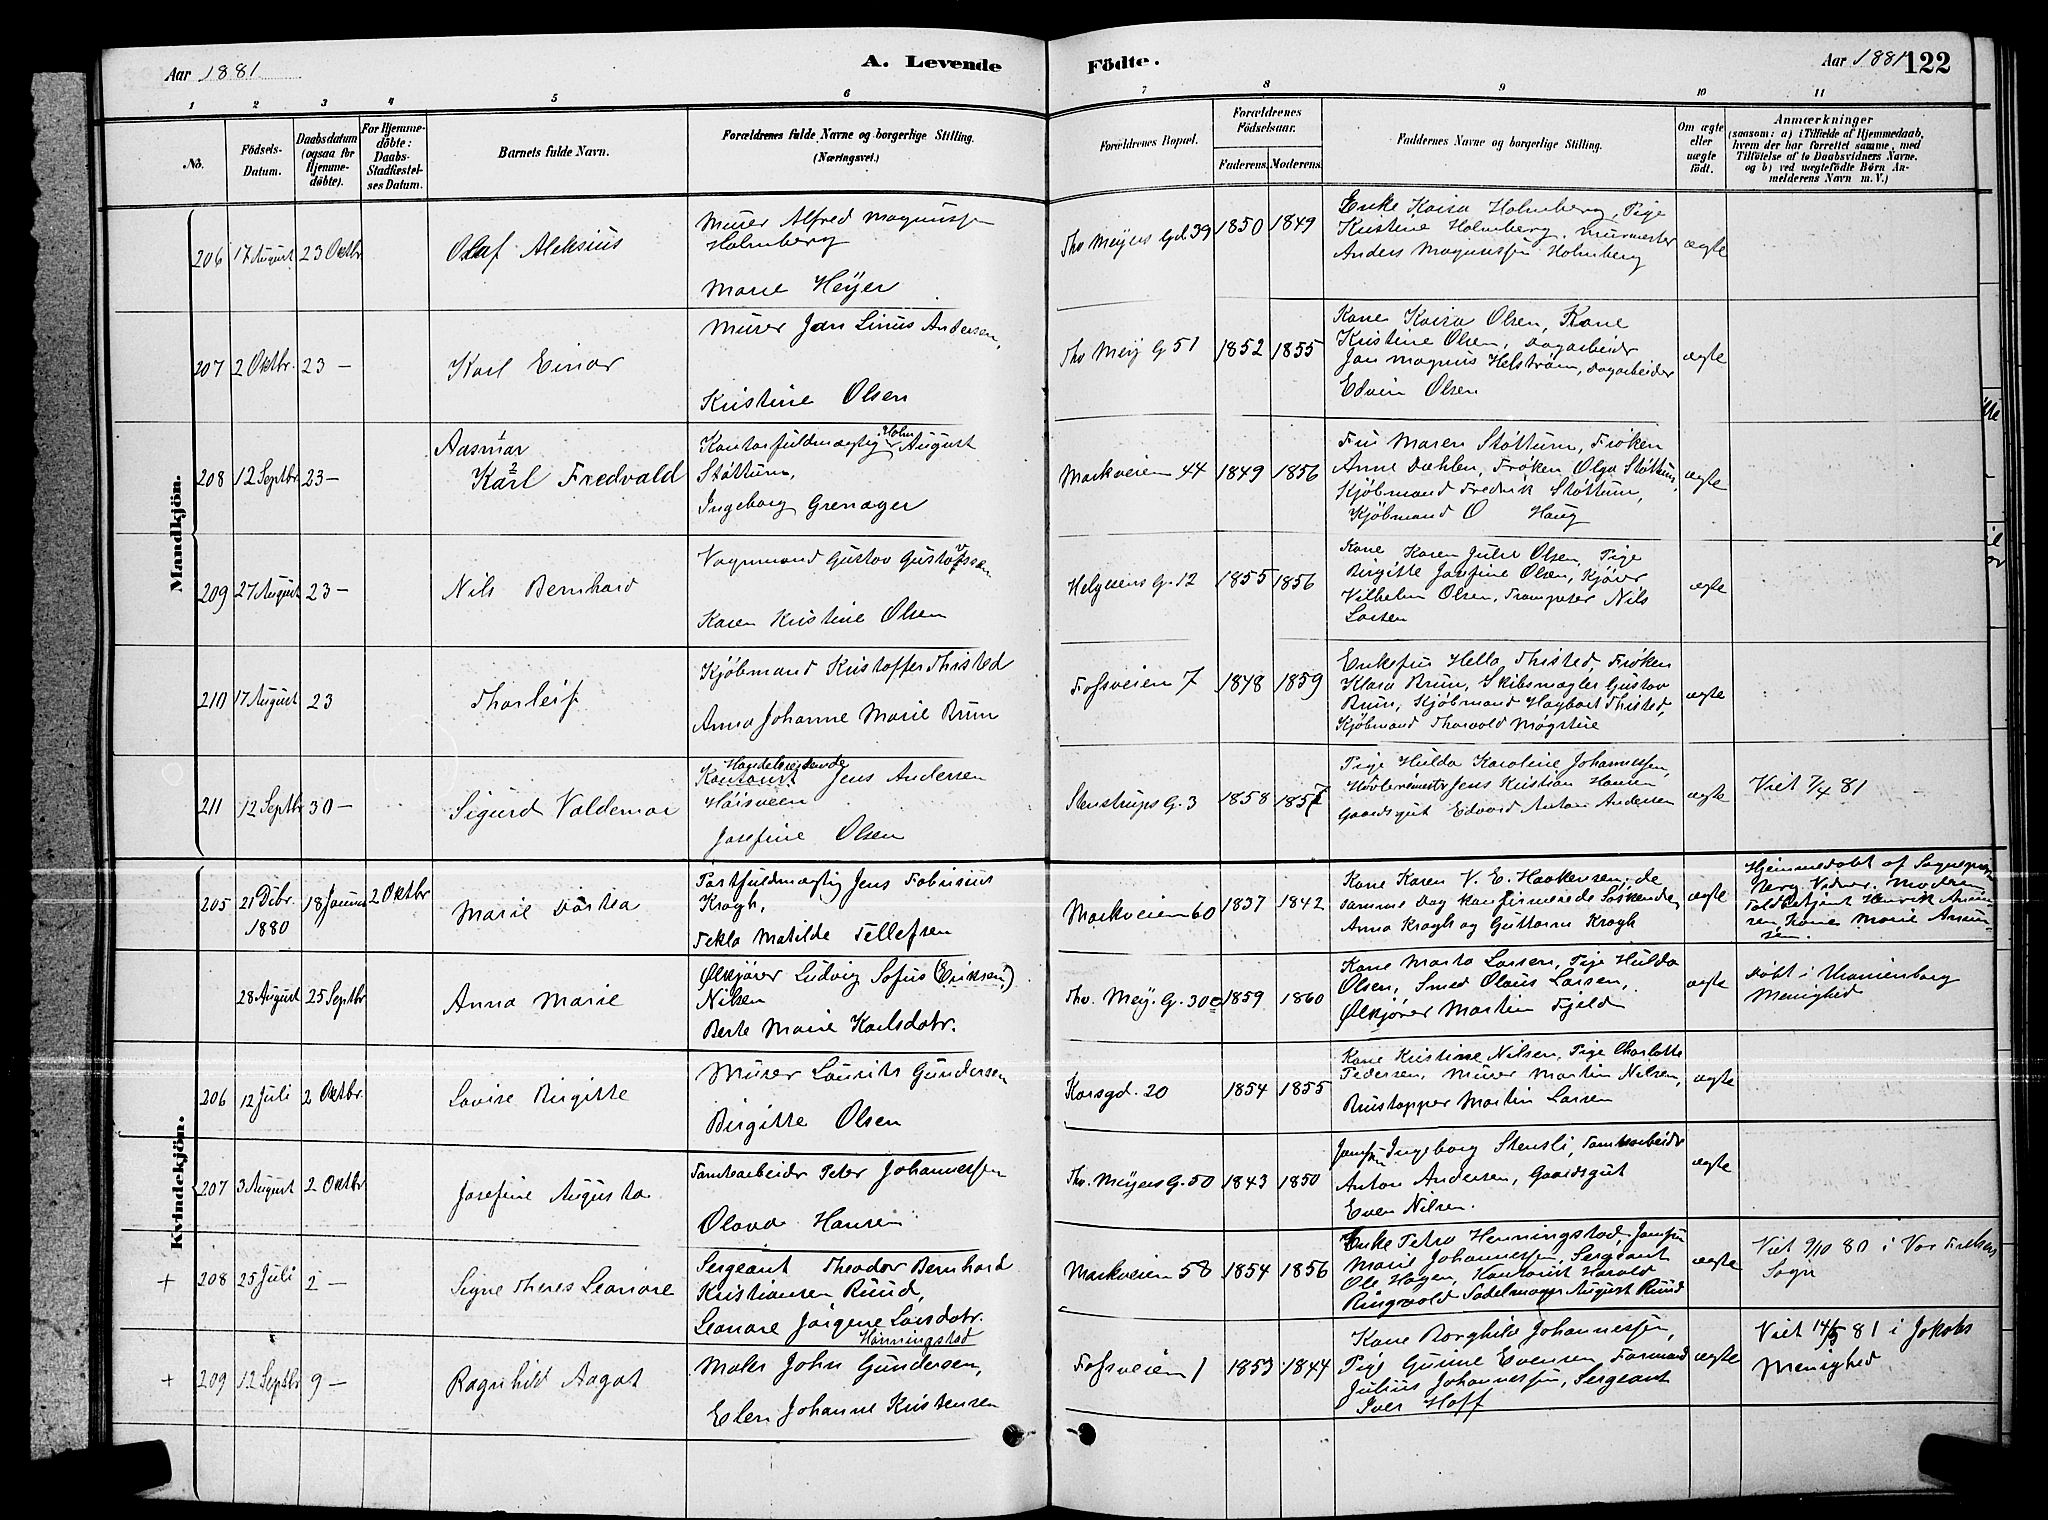 Aar 1881
A. Levende
Födte.
Aar 1881
122
1
2
3
4
5
6
7
8
9
10
11
No.
Födsels-
Datum.
Daabsdatum
(ogsaa for
Hjemme-
döbte).
For Hjemme-
döbte:
Daabs-
Stadfæstel-
ses Datum.
Barnets fulde Navn.
Forældrenes fulde Navne og borgerlige Stilling.
(Næringsvei.)
Forældrenes Bopæl.
Forældrenes
Födselsaar.
Faderens.
Moderens.
Faddernes Navne og borgerlige Stilling.
Om ægte
eller
uægte
födt.
Anmærkninger
(saasom: a) i Tilfælde af Hjemmedaab,
hvem der har forrettet samme, med
Tilföielse af to Daabsvidners Navne,
og b) ved uægtefödte Börn An-
melderens Navn m. V.)
Mandkjön.
206 17 August 23 Oktbr
Olaf Aleksius
Murer Alfred Magnussen
Holmberg
Marie Høyer
Th. Meyers Gd 39 1850 1849
Enke Kaisa Holmberg, Pige
Kristine Holmberg, Murmester
Anders Magnussen Holmberg
ægte
207 2 Oktbr. 23 —
Karl Einar
Murer Jan Linus Andersen,
Kristine Olsen
Th. Mey G 51 1852 1855
Kone Kaisa Olsen, Kone
Kristine Olsen, Dagarbeider
Jan Magnus Helstrøm, Dagarbeider
Edvin Olsen
ægte
208 12 Septbr 23 —
1
Aasmar
2
Karl Fredvald
Kontorfuldmægtig Holm August
Støttum,
Ingeborg Grenager
Markveien 44 1849 1856
Fru Maren Støttum, Frøken
Anne Dæhlen, Frøken Olga Støttum,
Kjøbmand Fredrik Støttum,
Kjøbmand O Haug
ægte
209 27 August 23 —
Nils Bernhard
Vognmand Gustav Gustavssen
Karen Kristine Olsen
Helgesens G. 12 1855 1856
Kone Karen Julie Olsen, Pige
Birgitte Josefine Olsen, Kjører
Vilhelm Olsen, Trompeter Nils
Larsen
ægte
210 17 August 23
Thorleif
Kjøbmand Kristoffer Thisted
Anna Johanne Marie Brun
Fossveien 7 1848 1859
Enkefru Hella Thisted, Frøken
Klara Brun, Skibsmægler Gustav
Brun, Kjøbmand Hagbart Thisted,
Kjøbmand Thorvald Møgstue
ægte
211 12 Septbr 30 —
Sigurd Valdemar
Handelsreisende
Kontorist Jens Andersen
Høisveen
Josefine Olsen
Stenstrups G. 3 1858 1857
Pige Hulda Karoline Johannessen,
Høvlerimestr Jens Kristian Hansen
Gaardsgut Edvard Anton Andersen
ægte
Viet 7/4 81
Kvindekjön.
205 21 Dcbr. 1880 18 Januar 2 Oktbr
Marie Dortea
Postfuldmægtig Jens Fabrisius
Kragh,
Tekla Matilde Tellefsen
Markveien 60 1837 1842
Kone Karen V. E. Haakensen, de
samme Dag konfirmerede Søskende
Anna Kragh og Guttorm Kragh
ægte
Hjemmedøbt af Sognepr.
Vidner: Moderen
Toldbetjent Henrik
Kone Marie
28 August 25 Septbr
Anna Marie
Ølkjører Ludvig Sofus (Eriksen)
Nilsen
Berte Marie Karlsdatr.
Th. Mey. G. 30c 1859 1860
Kone Marta Larsen, Pige Hulda
Olsen, Smed Olaus Larsen,
Ølkjører Martin Fjeld
ægte
Døbt i Uranienborg
Menighed
206 12 Juli 2 Oktbr.
Lovise Birgitte
Murer Laurits Gundersen
Birgitte Olsen
Korsgd. 20 1854 1855
Kone Kristine Nilsen, Pige Charlotte
Pedersen, Murer Martin Nilsen,
Martin Larsen
ægte
207 3 August 2 Oktbr
Josefine Augusta
Tomtearbeider Peter Johannessen
Olava Hansen
Th. Meyers G. 50 1843 1850
Jomfru Ingeborg Stensli, Tomtearbeider
Anton Andersen, Gaardsgut
Even Nilsen.
ægte
+ 208 25 Juli 2 —
Signe Theres Leonore
Sergeant Theodor Bernhard
Kristiansen Ruud,
Leonore Jørgine Larsdatr.
Henningstad
Markveien 58 1854 1856
Enke Petra Henningstad, Jomfru
Marie Johannessen, Sergeant
Ole Hagen, Kontorist Harald
Ringvold Sadelmager August Ruud
ægte
Viet 9/10 80 i Vor Frelsers
Sogn
+ 209 12 Septbr 9 —
Ragnhild Aagot
Maler John Gundersen,
Elen Johanne Kristensen
Fossveien 1 1853 1844
Kone Borghild Johannessen,
Pige Gunine Evensen Formand
Julius Johannessen, Sergeant
Iver Hoff
ægte
Viet 14/5 81 i Jakobs
Menighed